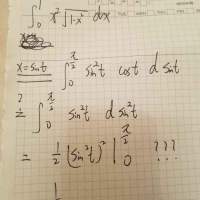 ∫₀¹ x² √(1-x²) dx
x=sint ∫₀^(π/2) sin²t cost d sint
?= ∫₀^(π/2) sin²t d sin²t
= 1/2 (sin²t)² |₀^(π/2) ???